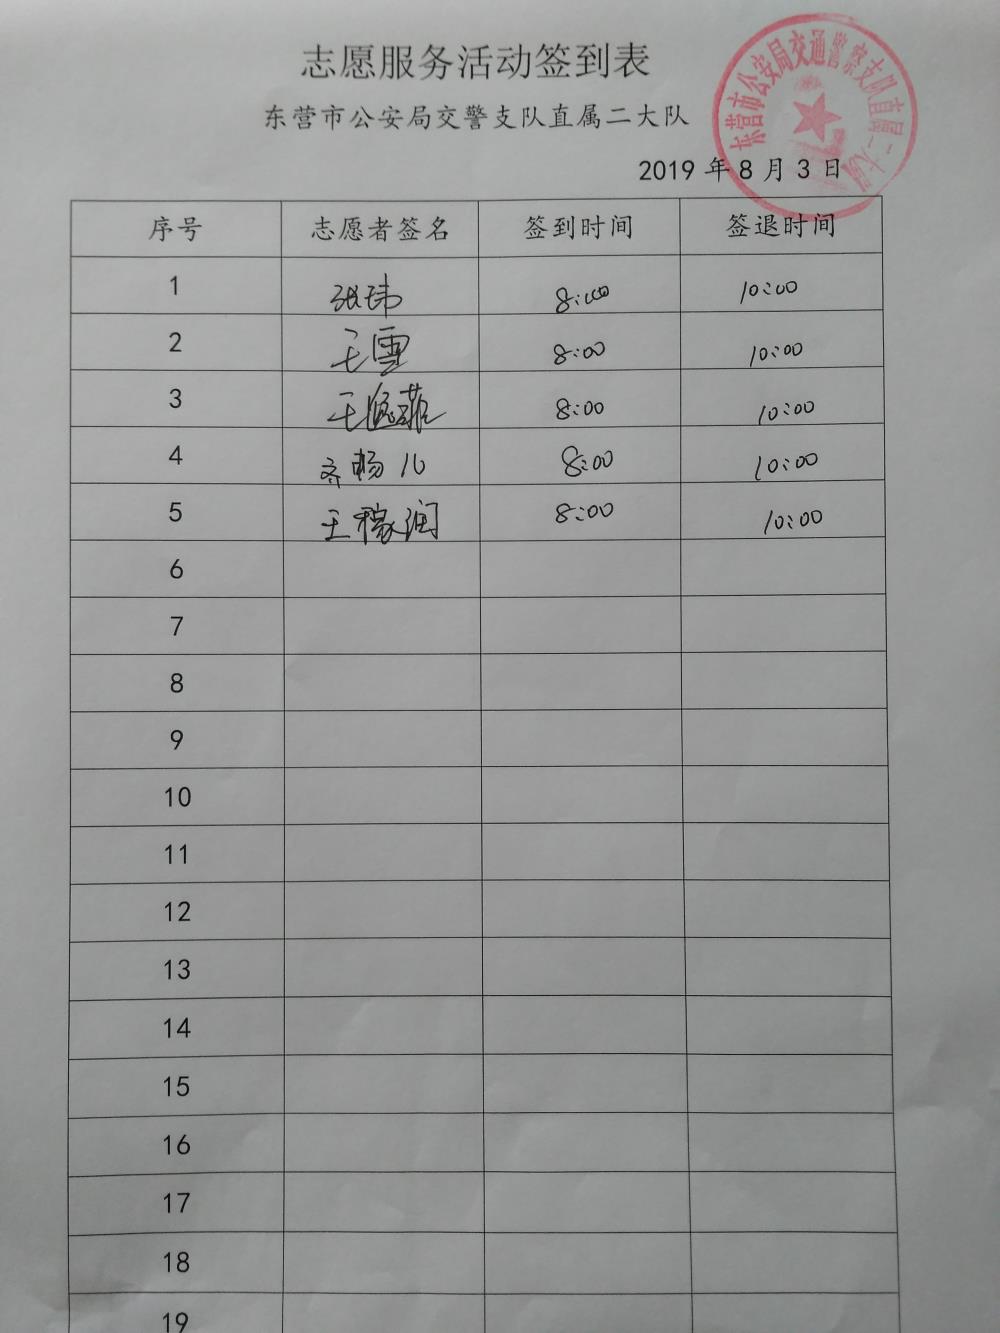 志愿服务活动签到表
东营市公安局交警支队直属二大队
东营市公安局交通警察支队直属二大队
2019 年 8 月 3 日
序号 志愿者签名 签到时间 签退时间
1 张玮 8:00 10:00
2 王雪 8:00 10:00
3 王 8:00 10:00
4 齐畅儿 8:00 10:00
5 王稼润 8:00 10:00
6
7
8
9
10
11
12
13
14
15
16
17
18
19